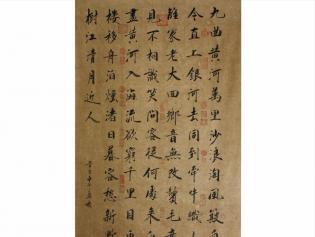 九曲黄河萬里沙浪淘風簸
今直上銀河去同到牽牛織
離家老大回鄉音無改鬢毛
且不相識笑問客從何處來
盡黄河入海流欲窮千里目
樓移舟泊煙渚日暮客愁新
樹江清月近人